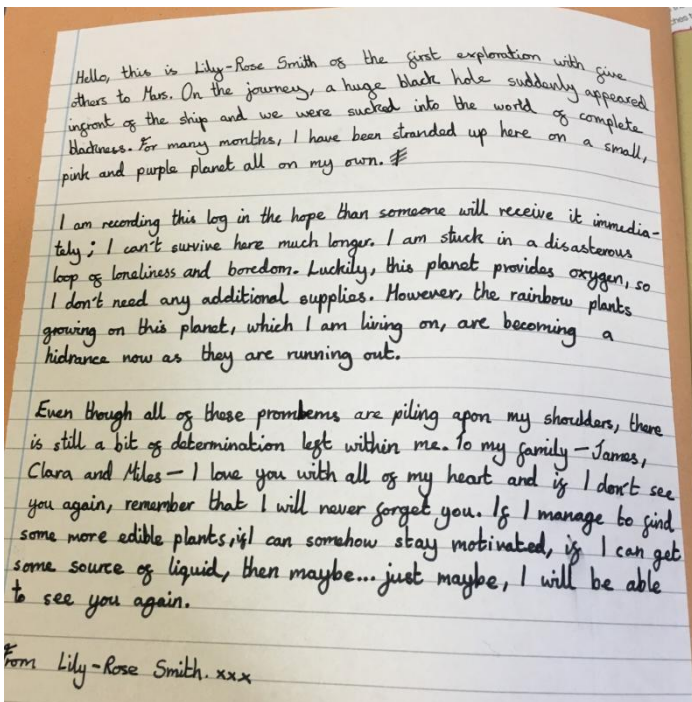 Hello, this is Lily-Rose Smith of the first exploration with five
others to Mars. On the journey, a huge black hole suddenly appeared
infront of the ship and we were sucked into the world of complete
blackness. For many months, I have been stranded up here on a small,
pink and purple planet all on my own.
I am recording this log in the hope than someone will receive it immedia-
tely; I can't survive here much longer. I am stuck in a disasterous
loop of loneliness and boredom. Luckily, this planet provides oxygen, so
I don't need any additional supplies. However, the rainbow plants
growing on this planet, which I am living on, are becoming a
hidrance now as they are running out.
Even though all of these prombems are piling apon my shoulders, there
is still a bit of determination left within me. To my family - James,
Clara and Miles - I love you with all of my heart and if I don't see
you again, remember that I will never forget you. If I manage to find
some more edible plants, if I can somehow stay motivated, if I can get
some source of liquid, then maybe... just maybe, I will be able
to see you again.
From Lily-Rose Smith. xxx